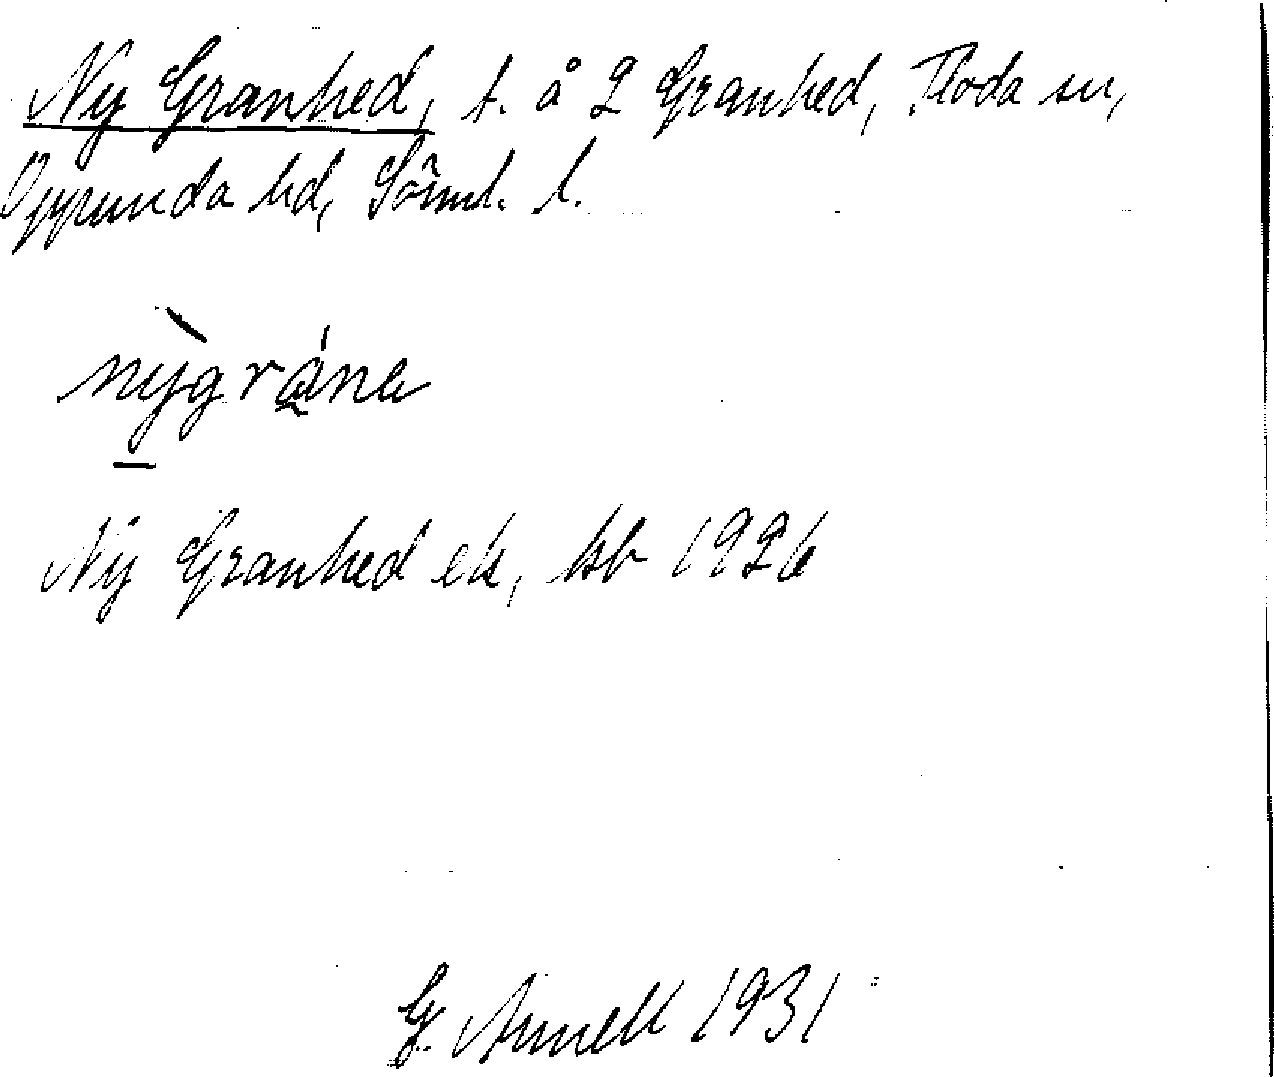 Ny Granhed, t. å 2 Granhed, Floda sn,
Oppunda hd, Söml. l.
nỳgrána
Ny Granhed ek, kb 1926
G. Arnell 1931